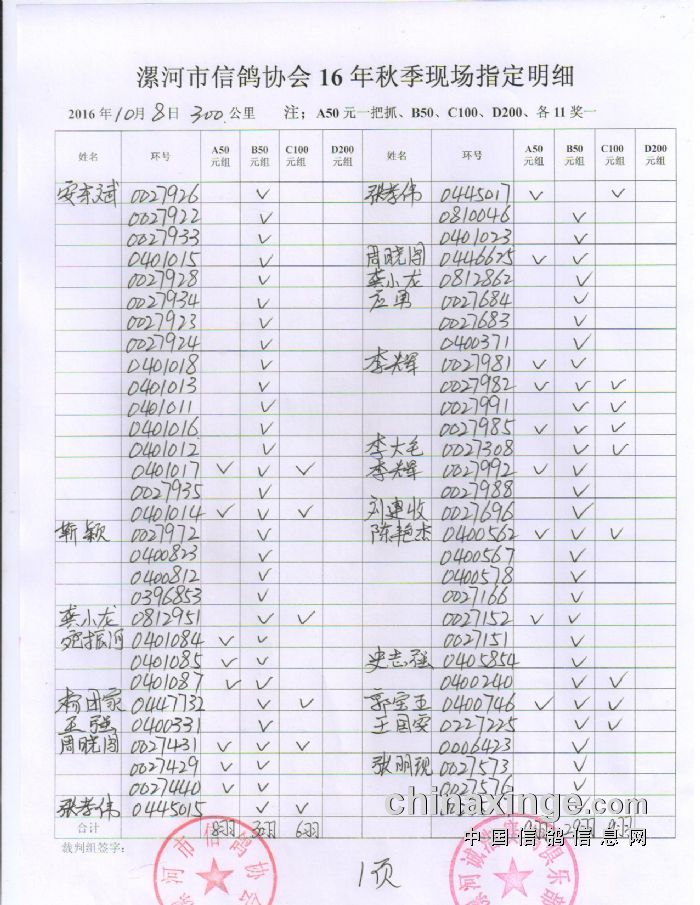 漯河市信鸽协会 16 年秋季现场指定明细
2016 年 10 月 8 日 300 公里 注；A50 元一把抓、B50、C100、D200、各 11 奖一
姓名 环号 A50元组 B50元组 C100元组 D200元组 姓名 环号 A50元组 B50元组 C100元组 D200元组
安东斌 0027926 ✓ 张孝伟 0445017 ✓ ✓
0027922 ✓ 0810046 ✓
0027933 ✓ 0401023 ✓
0401015 ✓ 周晓阁 0446625 ✓ ✓
0027928 ✓ 龚小龙 0812862 ✓
0027934 ✓ 应勇 0027684 ✓
0027923 ✓ 0027683 ✓
0027924 ✓ 0400371 ✓
0401018 ✓ 李兴辉 0027981 ✓ ✓
0401013 ✓ 0027982 ✓ ✓ ✓
0401011 ✓ 0027991 ✓ ✓
0401016 ✓ 0027985 ✓ ✓ ✓
0401012 ✓ 李大毛 0027308 ✓ ✓
0401017 ✓ ✓ ✓ 李兴辉 0027992 ✓ ✓
0027935 ✓ 0027988 ✓
0401014 ✓ ✓ ✓ 刘建收 0027696 ✓
靳颖 0027972 ✓ 陈艳杰 0400562 ✓ ✓ ✓
0400823 ✓ 0400567 ✓
0400812 ✓ 0400578 ✓
0396853 ✓ 0027166 ✓
龚小龙 0812951 ✓ ✓ 0027152 ✓ ✓
宛振河 0401084 ✓ ✓ 0027151 ✓
0401085 ✓ ✓ 史志强 0405854 ✓
0401087 ✓ ✓ 0400240 ✓ ✓
0447732 ✓ ✓ 郭宝亚 0400746 ✓ ✓ ✓
王强 0400331 ✓ 王国安 0227225 ✓ ✓
周晓阁 0027431 ✓ ✓ ✓ 0006423 ✓
0027429 ✓ ✓ 张明现 0027573 ✓
0027440 ✓ ✓ 0027576 ✓
张孝伟 0445015 ✓ ✓
合计 8羽 30羽 6羽 29羽 9羽
裁判组签字：
1页
漯河市信鸽协会
chinaxinge.com
中国信鸽信息网